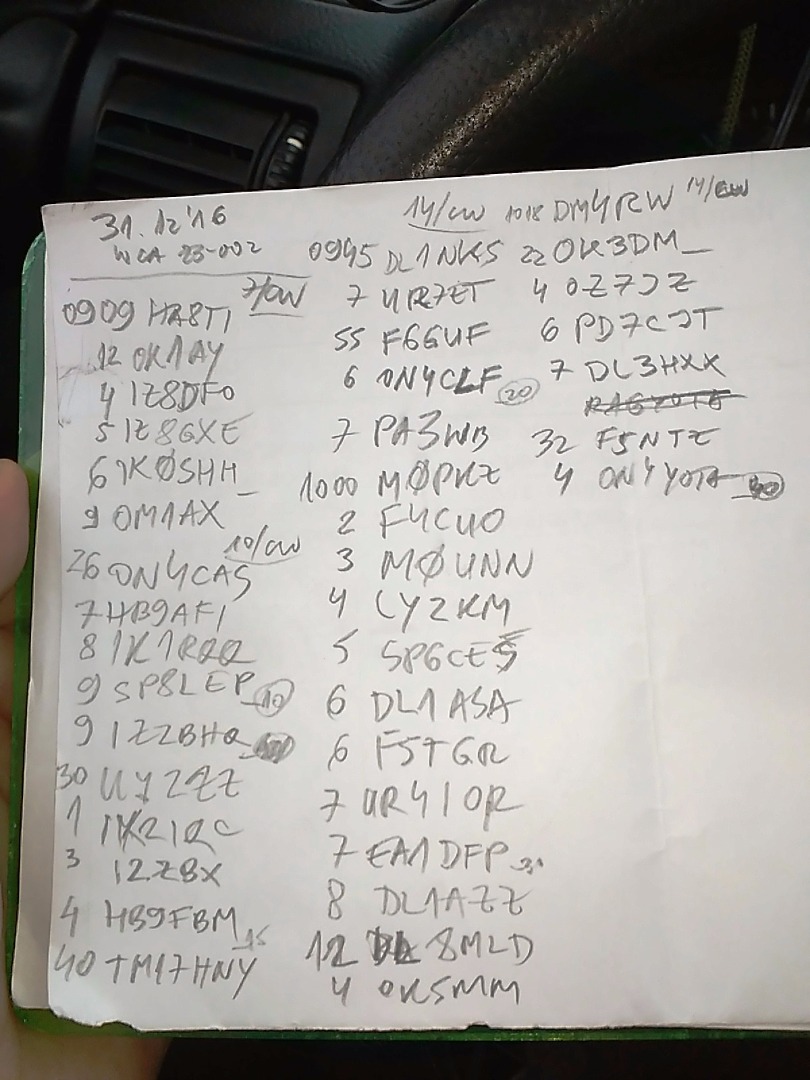 31.12'16
WCA 23-002
7/CW
0909 HA8TI
12 OK1AY
4 IZ8DFO
5 IZ8GXE
6 IK0SHH_
9 OM1AX
10/CW
26 ON4CAS
7 HB9AFI
8 IK1RQQ
9 SP8LEP_10
9 IZ2BHQ
30 UY2ZZ
1 IK2IQC
3 I2ZBX
4 HB9FBM 15
40 TM17HNY
14/CW
0945 DL1NKS
7 UR7ET
55 F6GUF
6 ON4CLF 20
7 PA3WB
1000 M0PKZ
2 F4CUO
3 M0UNN
4 LY2KM
5 SP6CES
6 DL1ASA
6 F5TGR
7 UR4IOR
7 EA1DFP
8 DL1AZZ
12 8MLD
4 OK5MM
1018 DM4RW 14/CW
22 OK3DM_
4 OZ7JZ
6 PD7CJT
7 DL3HXX
32 F5NTZ
4 ON4YOTA